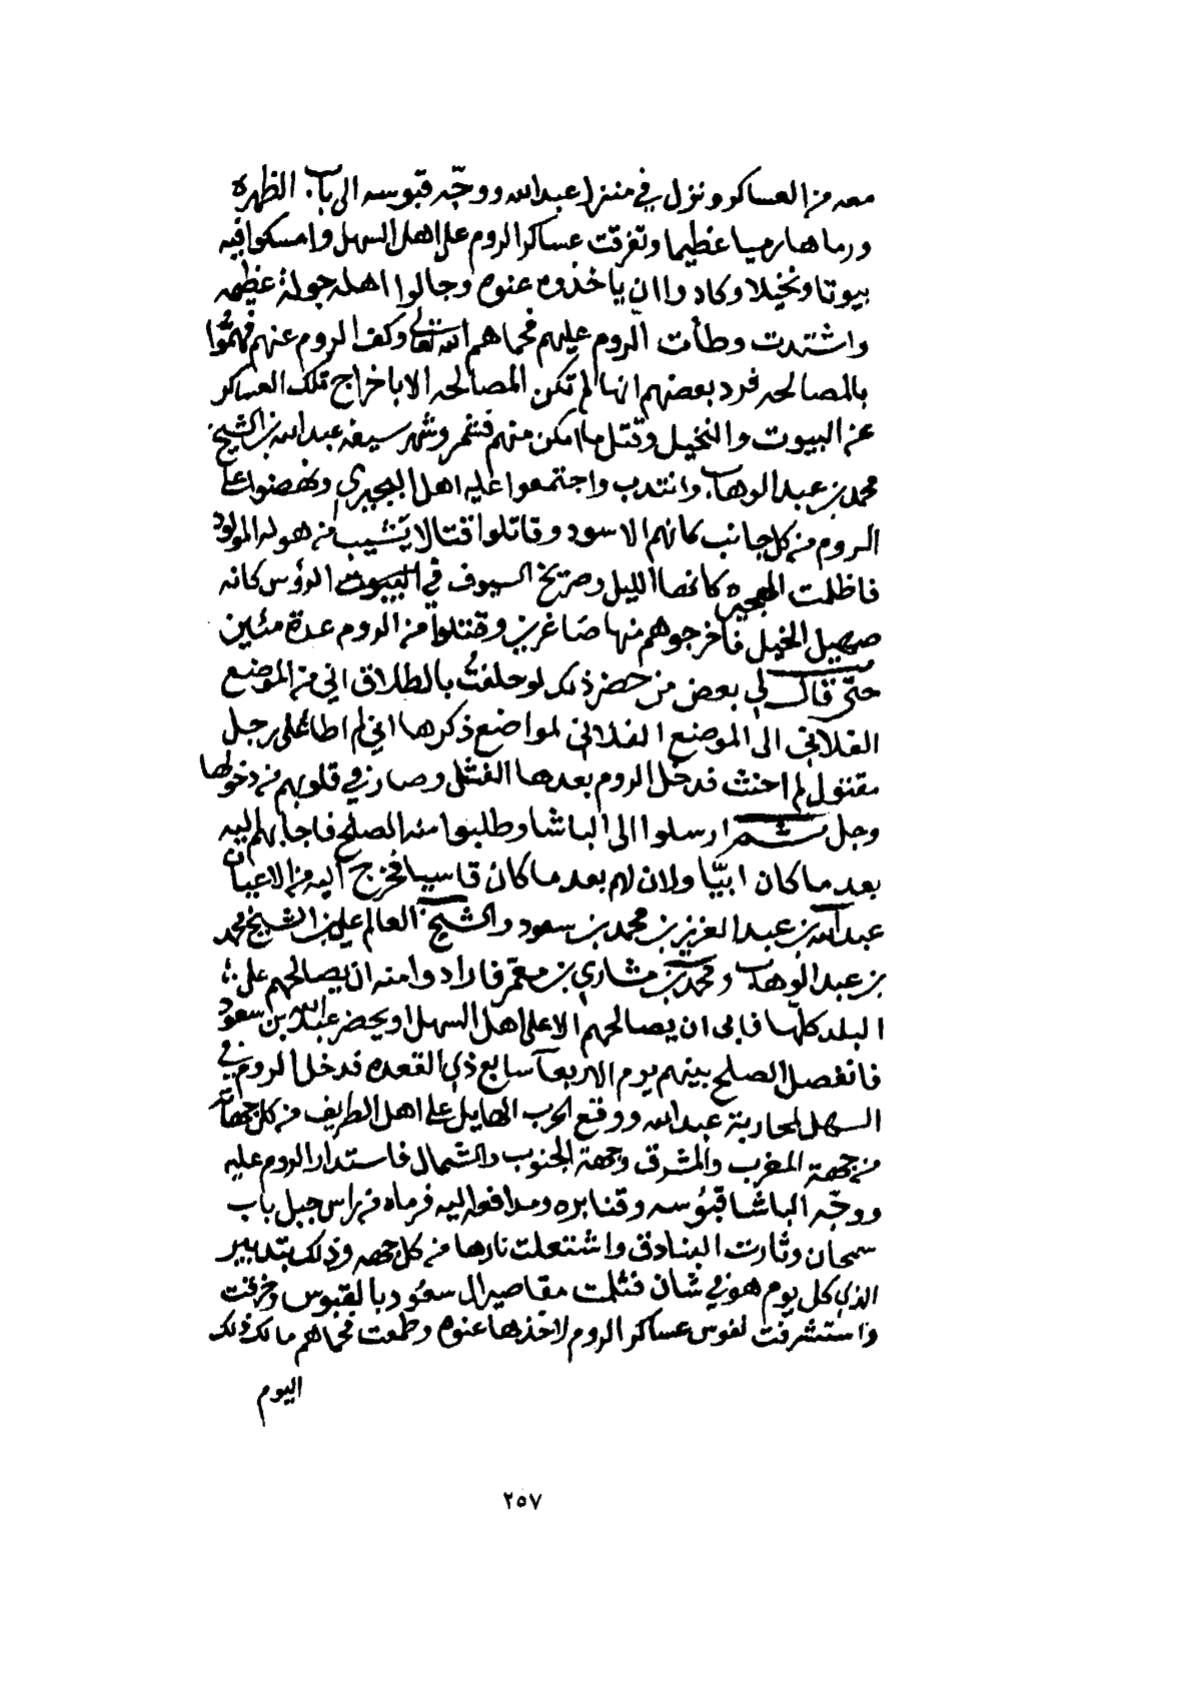 معه من العساكر ونزل في منزل عبدالله ووجّه قبوسه الى باب الظهره
ورماها رميا عظيما وتفرقت عساكر الروم على اهل السهل وامسكوا فيه
بيوتا ونخيلا وكادوا ان ياخذوه عنوه وجالوا اهله جولة عظيمه
واشتدت وطأت الروم عليهم فحماهم الله تعالى وكف الروم عنهم فهمّوا
بالمصالحه فرد بعضهم انها لم تكن المصالحه الا باخراج تلك العساكر
عن البيوت والنخيل وقتل ما امكن منهم فشمر وشهر سيفه عبدالله بن الشيخ
محمد بن عبدالوهاب وانتدب واجتمعوا عليه اهل البجيري ونهضوا على
الروم من كل جانب كانهم الاسود وقاتلوا قتالا يشيب من هوله المولود
فاظلمت البجيري كانها الليل وصريخ السيوف في البيوت الرؤس كانه
صهيل الخيل فاخرجوهم منها صاغرين وقتلوا من الروم عدة مئين
حتى قال لي بعض من حضر ذلك لو حلفت بالطلاق اني من الموضع
الفلاني الى الموضع الفلاني لمواضع ذكرها اني لم اطأ على رجل
مقتول لم احنث فدخل الروم بعدها الفشل وصار في قلوبهم من دخولها
وجل ثم ارسلوا الى الباشا وطلبوا منه الصلح فاجابهم اليه
بعد ما كان ابيّا ولان لهم بعد ما كان قاسيا فخرج اليه من الاعيان
عبدالله بن عبدالعزيز بن محمد بن سعود والشيخ العالم علي بن الشيخ محمد
بن عبدالوهاب ومحمد بن مشاري بن معمر فارادوا منه ان يصالحهم على
البلد كلها فابى ان يصالحهم الا على اهل السهل او يحضر عبدالله بن سعود
فانفصل الصلح بينهم يوم الاربعا سابع ذي القعده فدخل الروم في
السهل لمحاربة عبدالله ووقع الحرب الهايل على اهل الطريف من كل جهاته
من جهة المغرب والمشرق وجهة الجنوب والشمال فاستدار الروم عليه
ووجّه الباشا قبوسه وقنابره ومدافعه اليه فرماه من راس جبل باب
سمحان وثارت البنادق واشتعلت نارها من كل جهه وذلك بتدبير
الذي كل يوم هو في شان فثلمت مقاصير ال سعود بالقبوس وخرقت
واستشرفت نفوس عساكر الروم لاخذها عنوه وطمعت فحماهم مالك ذلك
اليوم
٢٥٧